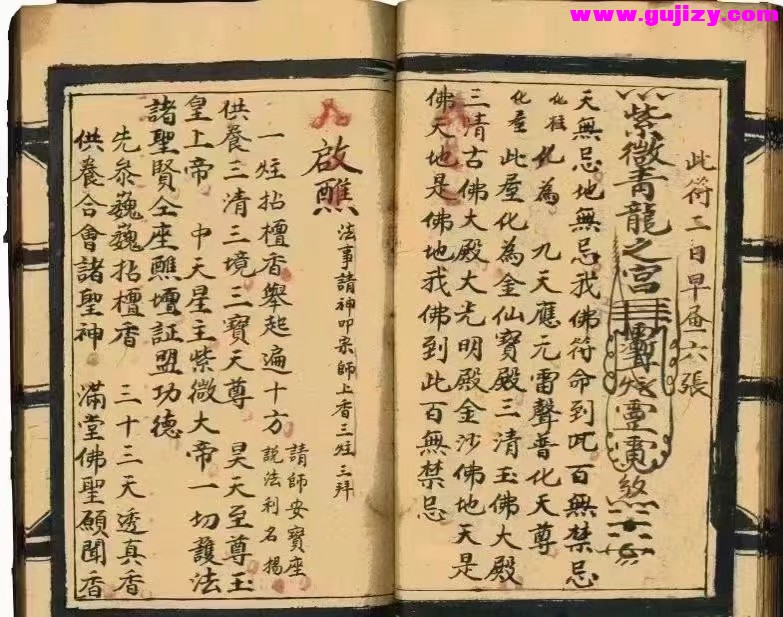 www.gujizy.com
此符二日早畐六張
紫微青龍之宮
靈寶煞
天無忌地無忌我佛符命到此百無禁忌
化粧 化為 九天應元雷聲普化天尊
化屋 此屋化為金仙寶殿三清玉佛大殿
三清古佛大殿大光明殿金沙佛地天是
佛天地是佛地我佛到此百無禁忌
啟醮 法事請神叩宗師上香三炷三拜
請師安寶座
一炷拈檀香舉起遍十方 說法利名揚
供養三清三境三寶天尊 昊天至尊玉
皇上帝 中天星主紫微大帝一切護法
諸聖賢仝座醮壇証盟功德
先叅巍巍拈檀香 三十三天透真香
供養合會諸聖神 滿堂佛聖願聞香